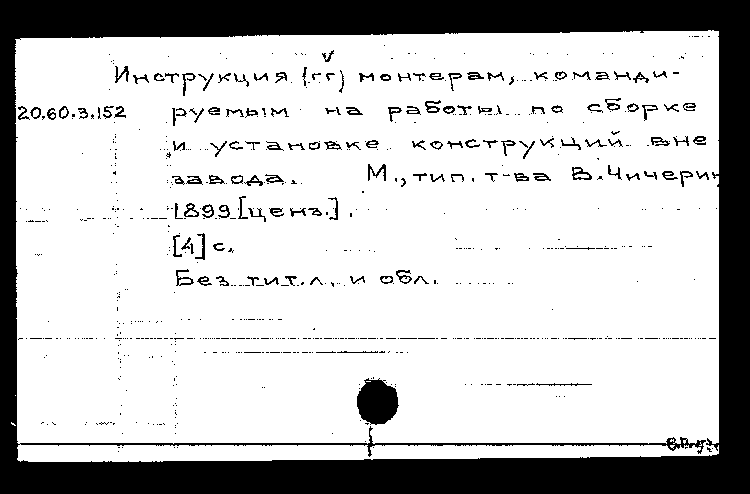 Инструкция (гг) монтерам, команди-
20.60.3.152 руемым на работы по сборке
и установке конструкций вне
завода. М., тип. т-ва В. Чичерин
1899 [ценз.].
[4] с.
Без тит.л. и обл.